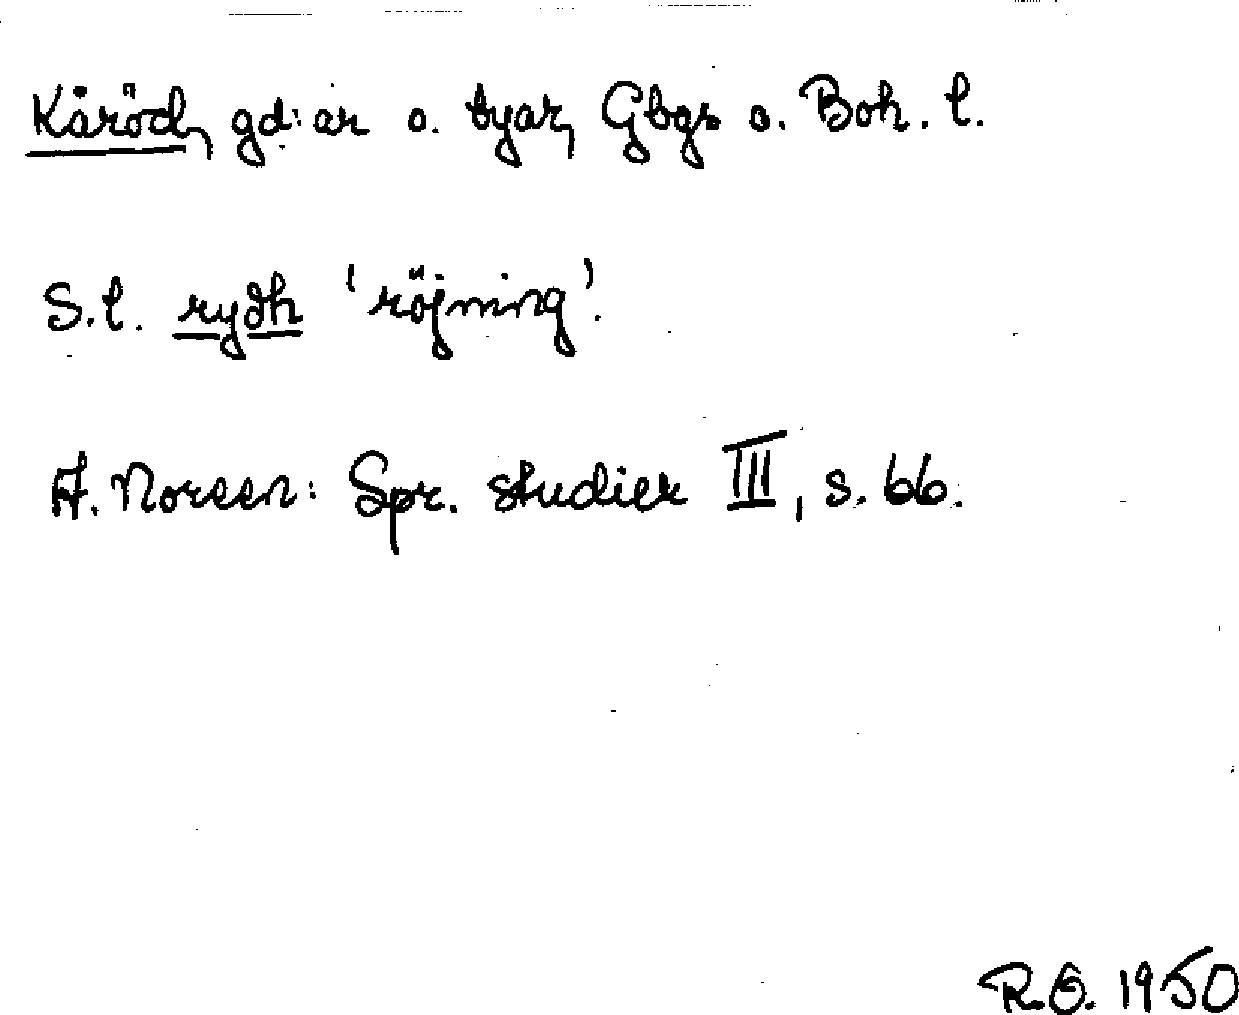 Kåröd, gd:ar o. byar, Gbgs o. Boh. l.
S.l. rydh 'röjning'.
A. Noreen: Spr. studier III, s. 66.
R.Ö. 1950